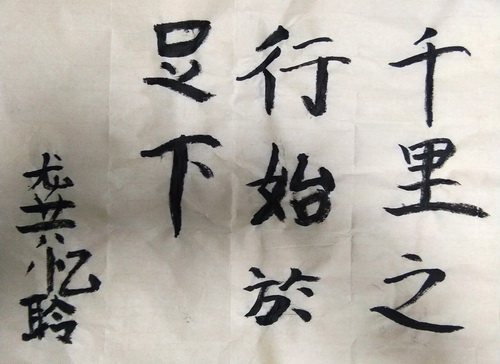 千里之
行始於
足下
龙共忆聆